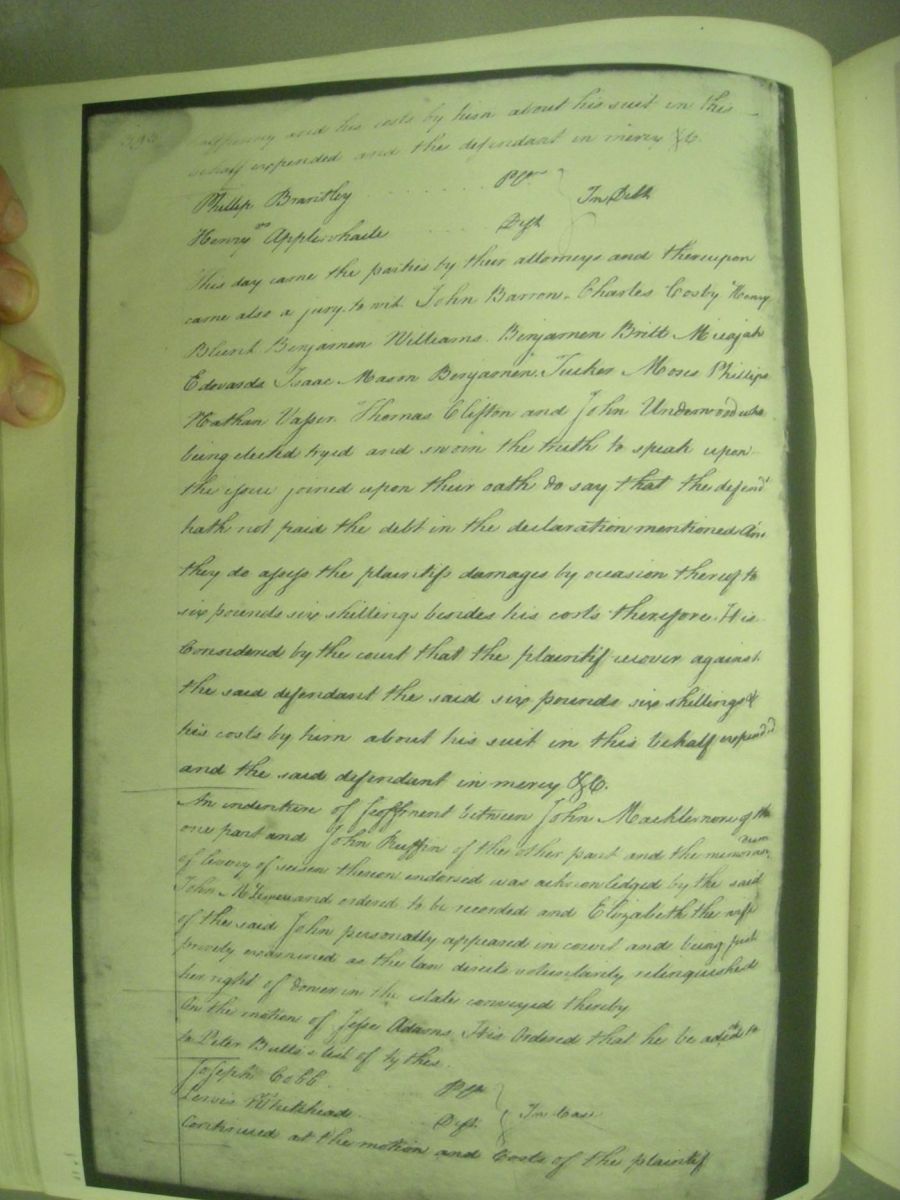 halfpenny and his costs by him about his suit in this
behalf expended and the defendant in mercy &c
Phillip Brantley Plt
Henry Applewhaite Deft } In Debt
This day came the parties by their attorneys and thereupon
came also a jury to wit. John Barron. Charles Cosby Henry
Blunt Benjamen Williams. Benjamen Britt Micajah
Edwards Isaac Mason Benjamen Tucker Moses Phillips
Nathan Vasser Thomas Clifton and John Underwood who
being elected tryed and sworn the truth to speak upon
the issue joined upon their oath do say that the defendt
hath not paid the debt in the declaration mentioned An
they do assess the plaintifs damages by occasion thereof to
six pounds six shillings besides his costs therefore. It is
Considered by the court that the plaintif recover against
the said defendant the said six pounds six shillings &
his costs by him about his suit in this behalf expended
and the said defendant in mercy &C.
An indenture of feoffment between John Macklemore of the
one part and John Ruffin of the other part and the memorandum
of livery of seisen thereon endorsed was acknowledged by the said
John and ordered to be recorded and Elizabeth the wife
of the said John personally appeared in court and being first
privily examined as the law directs voluntarily relinquished
her right of dower in the estate conveyed thereby
On the motion of Jesse Adams It is Ordered that he be added to
to Peter Butts's list of tythes.
Joseph Cobb Plt
Lewis Whitehead Deft } In Case
Continued at the motion and Costs of the plaintif